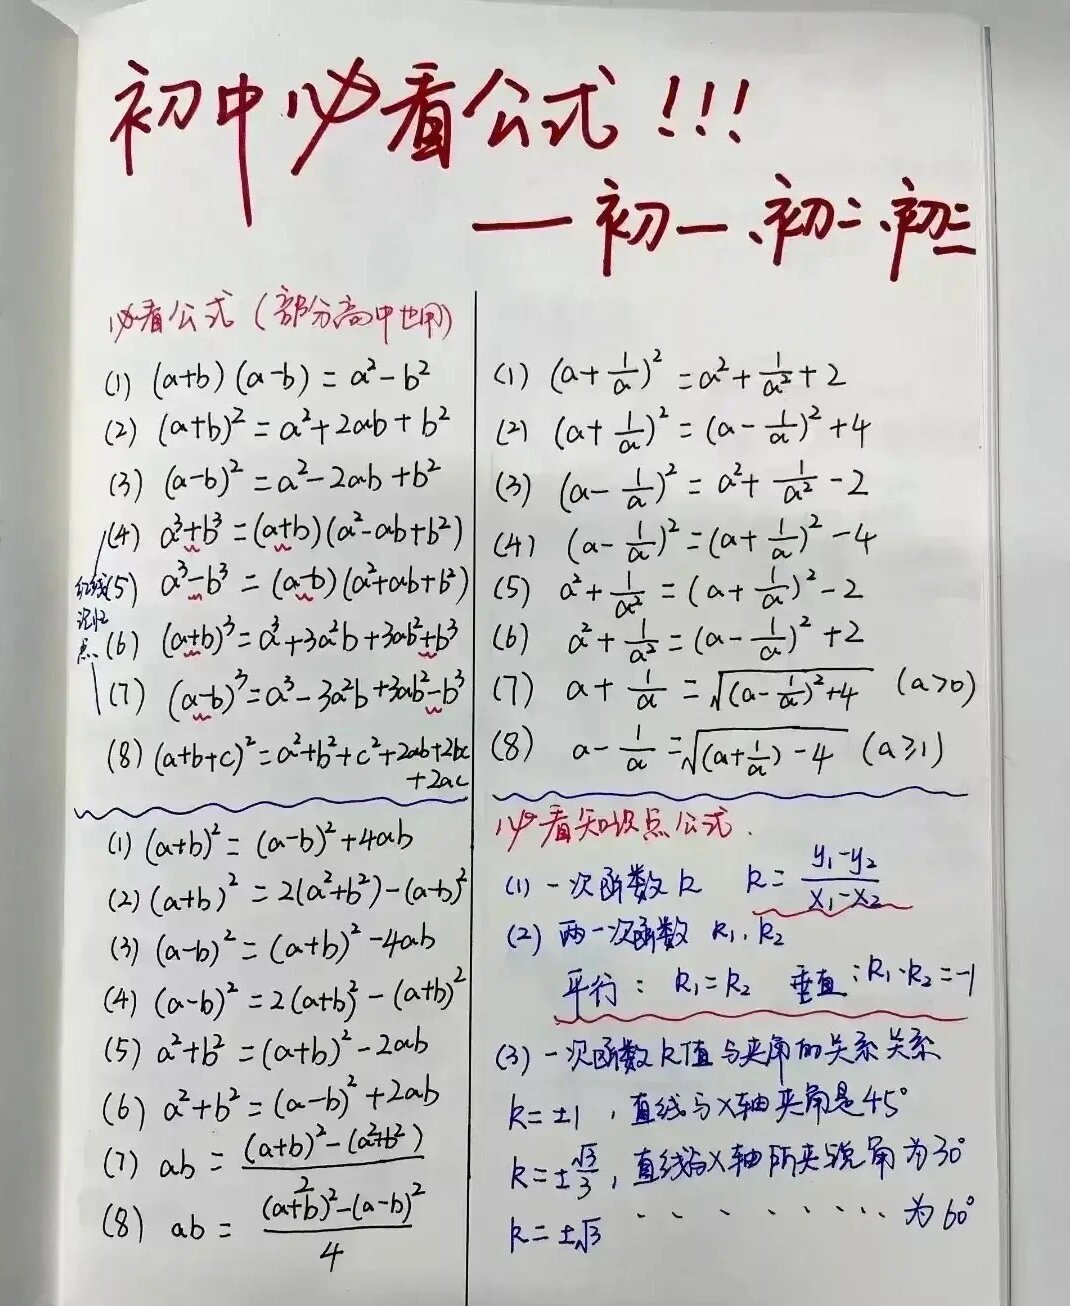 初中必看公式!!!
—初一、初二、初三
必看公式(部分高中也用)
(1) (a+b)(a-b) = a²-b²
(2) (a+b)² = a²+2ab+b²
(3) (a-b)² = a²-2ab+b²
(4) a³+b³ = (a+b)(a²-ab+b²)
(5) a³-b³ = (a-b)(a²+ab+b²)
(6) (a+b)³ = a³+3a²b+3ab²+b³
(7) (a-b)³ = a³-3a²b+3ab²-b³
(8) (a+b+c)² = a²+b²+c²+2ab+2bc
+2ac
红线
记忆
点
(1) (a+b)² = (a-b)²+4ab
(2) (a+b)² = 2(a²+b²)-(a-b)²
(3) (a-b)² = (a+b)²-4ab
(4) (a-b)² = 2(a+b)²-(a+b)²
(5) a²+b² = (a+b)²-2ab
(6) a²+b² = (a-b)²+2ab
(7) ab = \frac{(a+b)²-(a²+b²)}{2}
(8) ab = \frac{(a+b)²-(a-b)²}{4}
(1) (a+\frac{1}{a})² = a²+\frac{1}{a²}+2
(2) (a+\frac{1}{a})² = (a-\frac{1}{a})²+4
(3) (a-\frac{1}{a})² = a²+\frac{1}{a²}-2
(4) (a-\frac{1}{a})² = (a+\frac{1}{a})²-4
(5) a²+\frac{1}{a²} = (a+\frac{1}{a})²-2
(6) a²+\frac{1}{a²} = (a-\frac{1}{a})²+2
(7) a+\frac{1}{a} = \sqrt{(a-\frac{1}{a})²+4} (a>0)
(8) a-\frac{1}{a} = \sqrt{(a+\frac{1}{a})-4} (a≥1)
必看知识点公式.
(1) 一次函数k k = \frac{y₁-y₂}{x₁-x₂}
(2) 两一次函数 k₁、k₂
平行: k₁=k₂ 垂直: k₁·k₂=-1
(3) 一次函数k值与夹角的关系关系
k=±1, 直线与x轴夹角是45°
k=±\frac{√3}{3}, 直线与x轴所夹锐角为30°
k=±√3 ········· 为60°